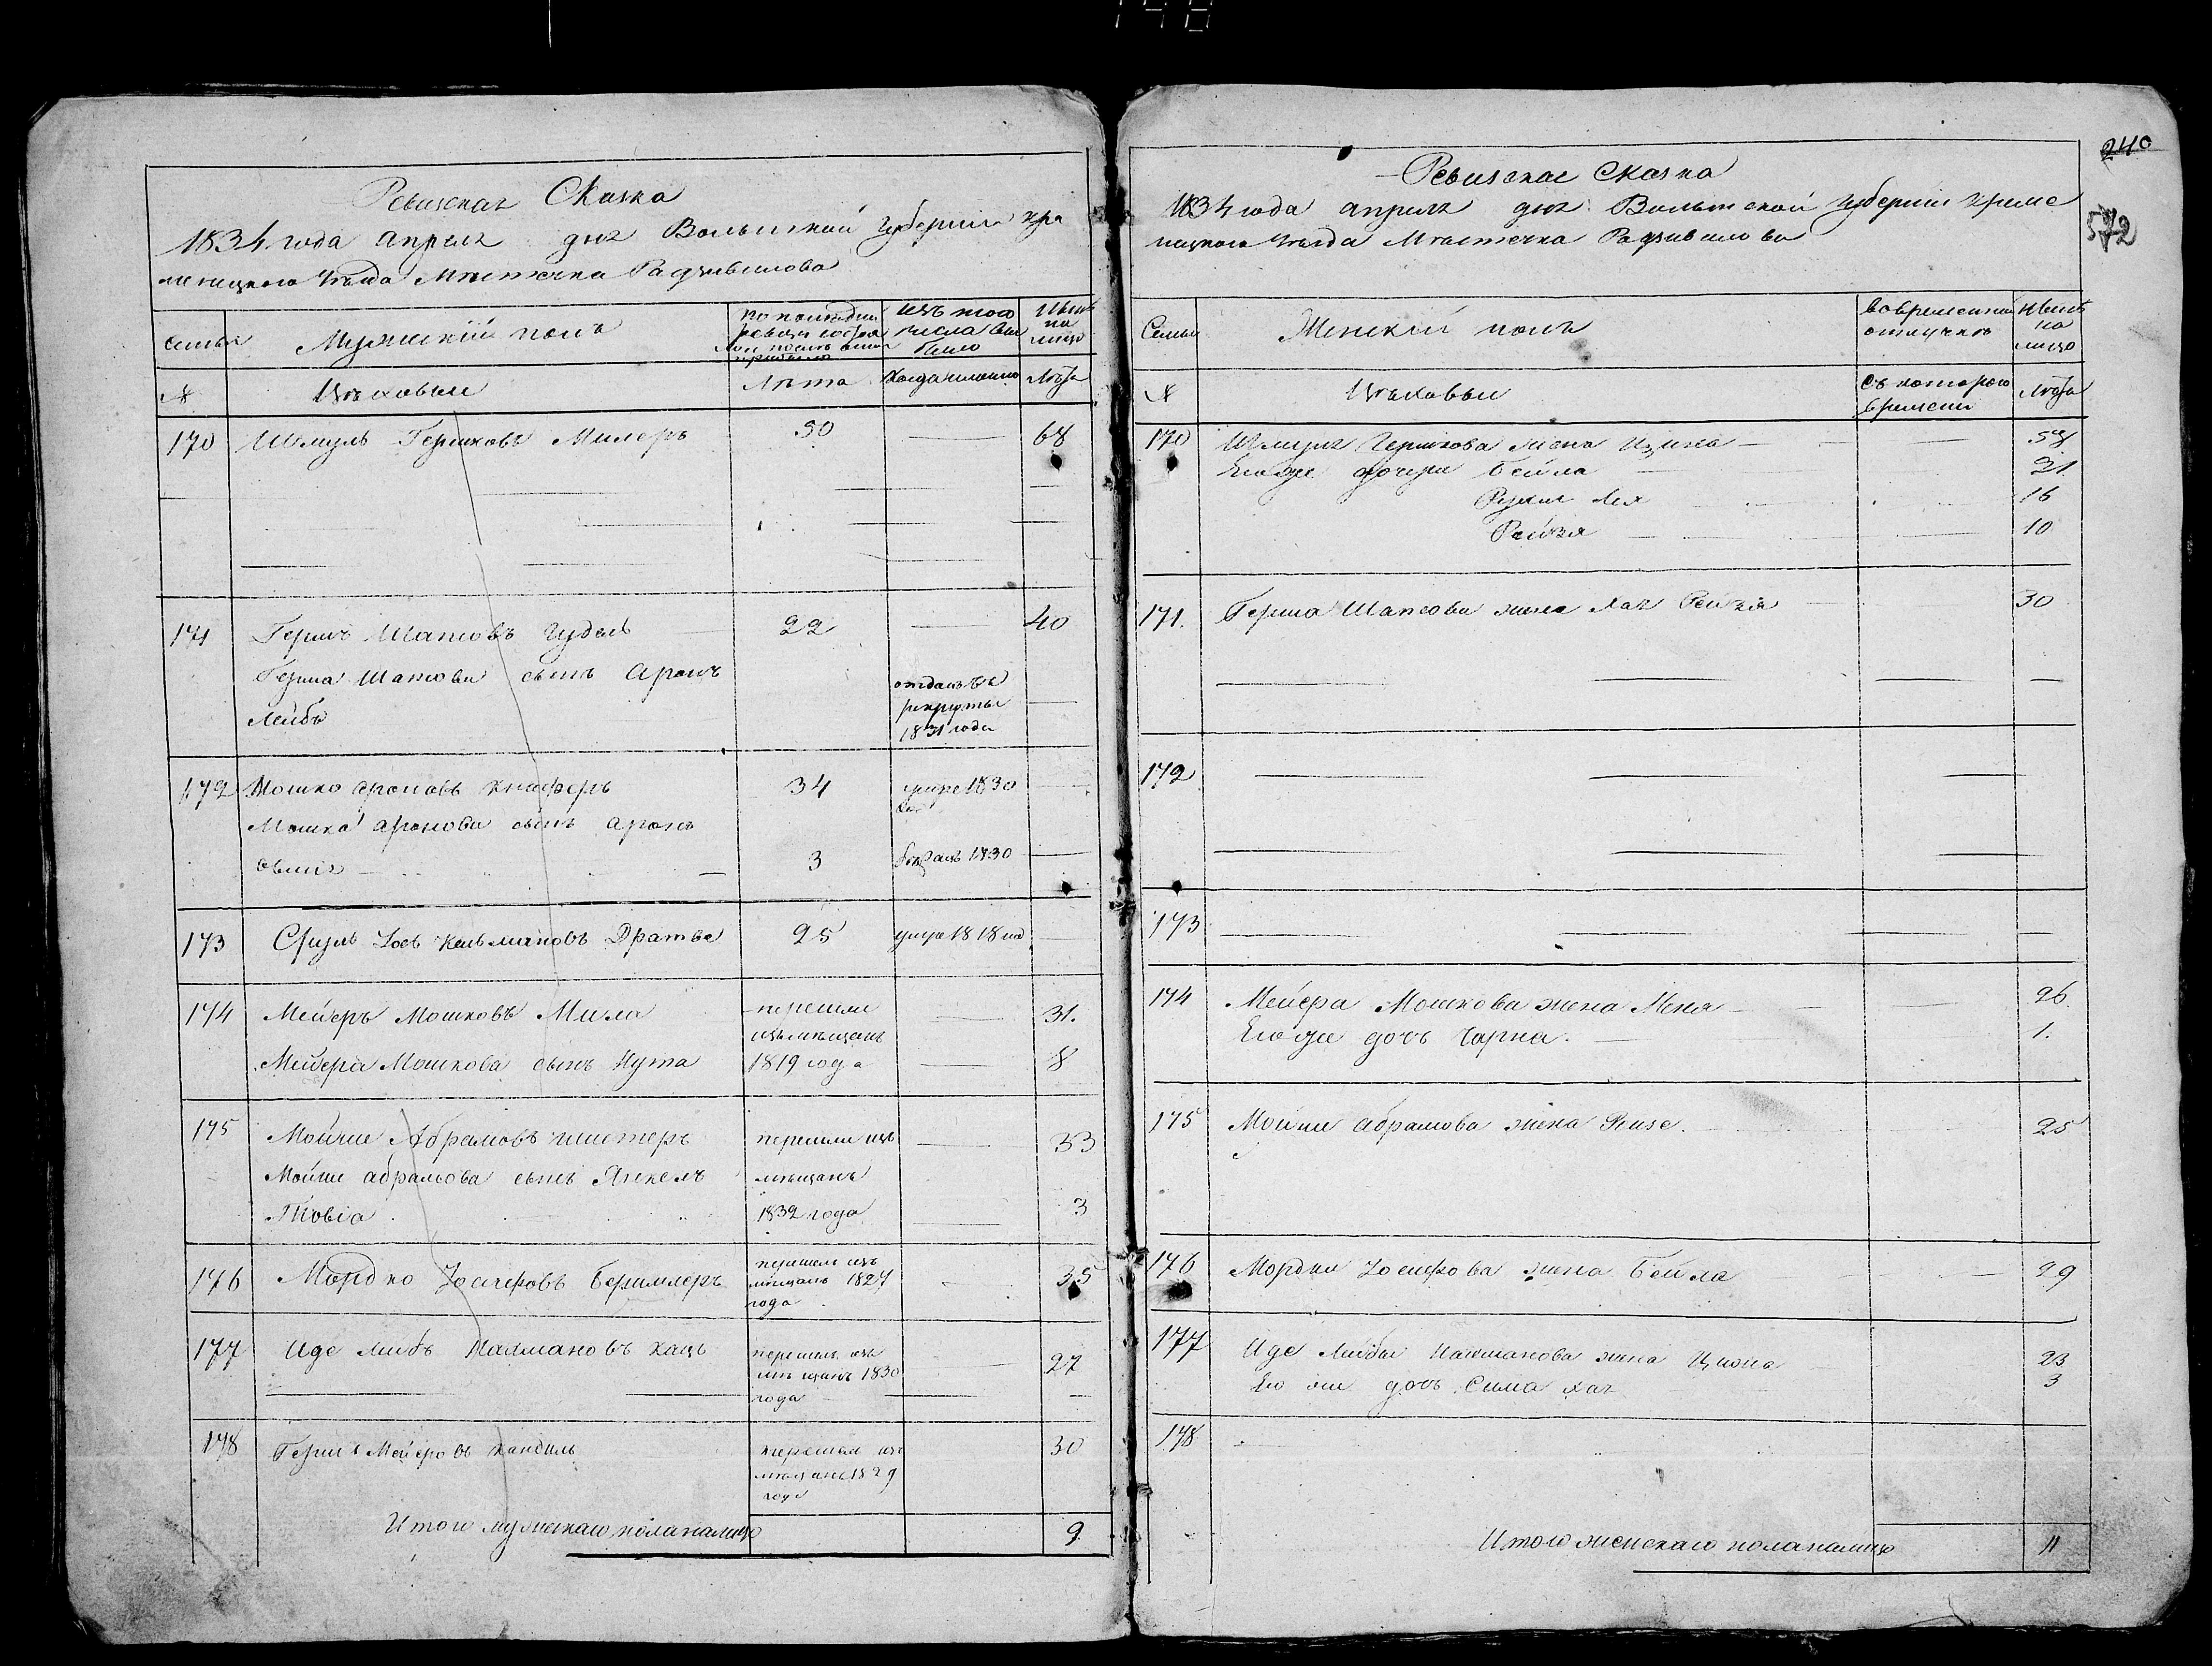 148
Ревизская Сказка
1834 года апреля дня Волынской губернии кре
менецкого уезда Местечка Радзивилова
семьи
Мужеский полъ
по последней
ревизии состоя
ло и после оной
прибыло
изъ того
числа вы
было
Ныне
на
лицо
№
Цеховыи
Лета
Когда именно
Лета
170 Шмуль Гершковъ Милеръ 50 68
171 Гершъ Шапсовъ Гудель 22 40
Герша Шапсова сынъ Аронъ
Лейбъ
отданъ въ
рекруты
1831 года
172 Мошко Ароновъ 34 умре 1830
Мошка Аронова сынъ Аронъ
Овшия 3 1830
173 Сруль Иосъ Кельмановъ Дратва 25 умре 1818 го
174 Мейеръ Мошковъ Мила
перешли
изъ мещанъ
1819 года
31.
Мейера Мошкова сынъ Нута 8
175 Мойше Абрамовъ
Мойши Абрамова сынъ Янкель
Товiа
перешли изъ
мещанъ
1832 года
33
3
176 Мордко Иосифовъ
перешелъ изъ
мещанъ 1827
года
35
177 Иде Лейбъ Нахмановъ Кацъ
перешелъ изъ
мещанъ 1830
года
27
178 Гершъ Мейеровъ Кандиль
перешелъ изъ
мещанъ 1829
года
30
Итого мужескаго пола налицо 9
240
572
Ревизская Сказка
1834 года апреля дня Волынской губернии креме
нецкого уезда Местечка Радзивилова
Семьи
Женский полъ
Во временной
отлучке
Ныне
на
лицо
№
Цеховыи
Съ которого
времени
Лета
170 Шмуля Гершкова жена 58
Его же дочери Бейла 21
Рухля Лея 16
Рейзя 10
171. Герша Шапсова жена Хая Рейзя 30
172
173
174 Мейера Мошкова жена Меня 26.
Его же дочь Чарна. 1.
175 Мойши Абрамова жена 25
176 Мордки Иосифова жена Бейла 29
177 Иде Лейбы Нахманова жена 23
Его же дочь Сима Хая 3
178
Итого женскаго пола налицо 11